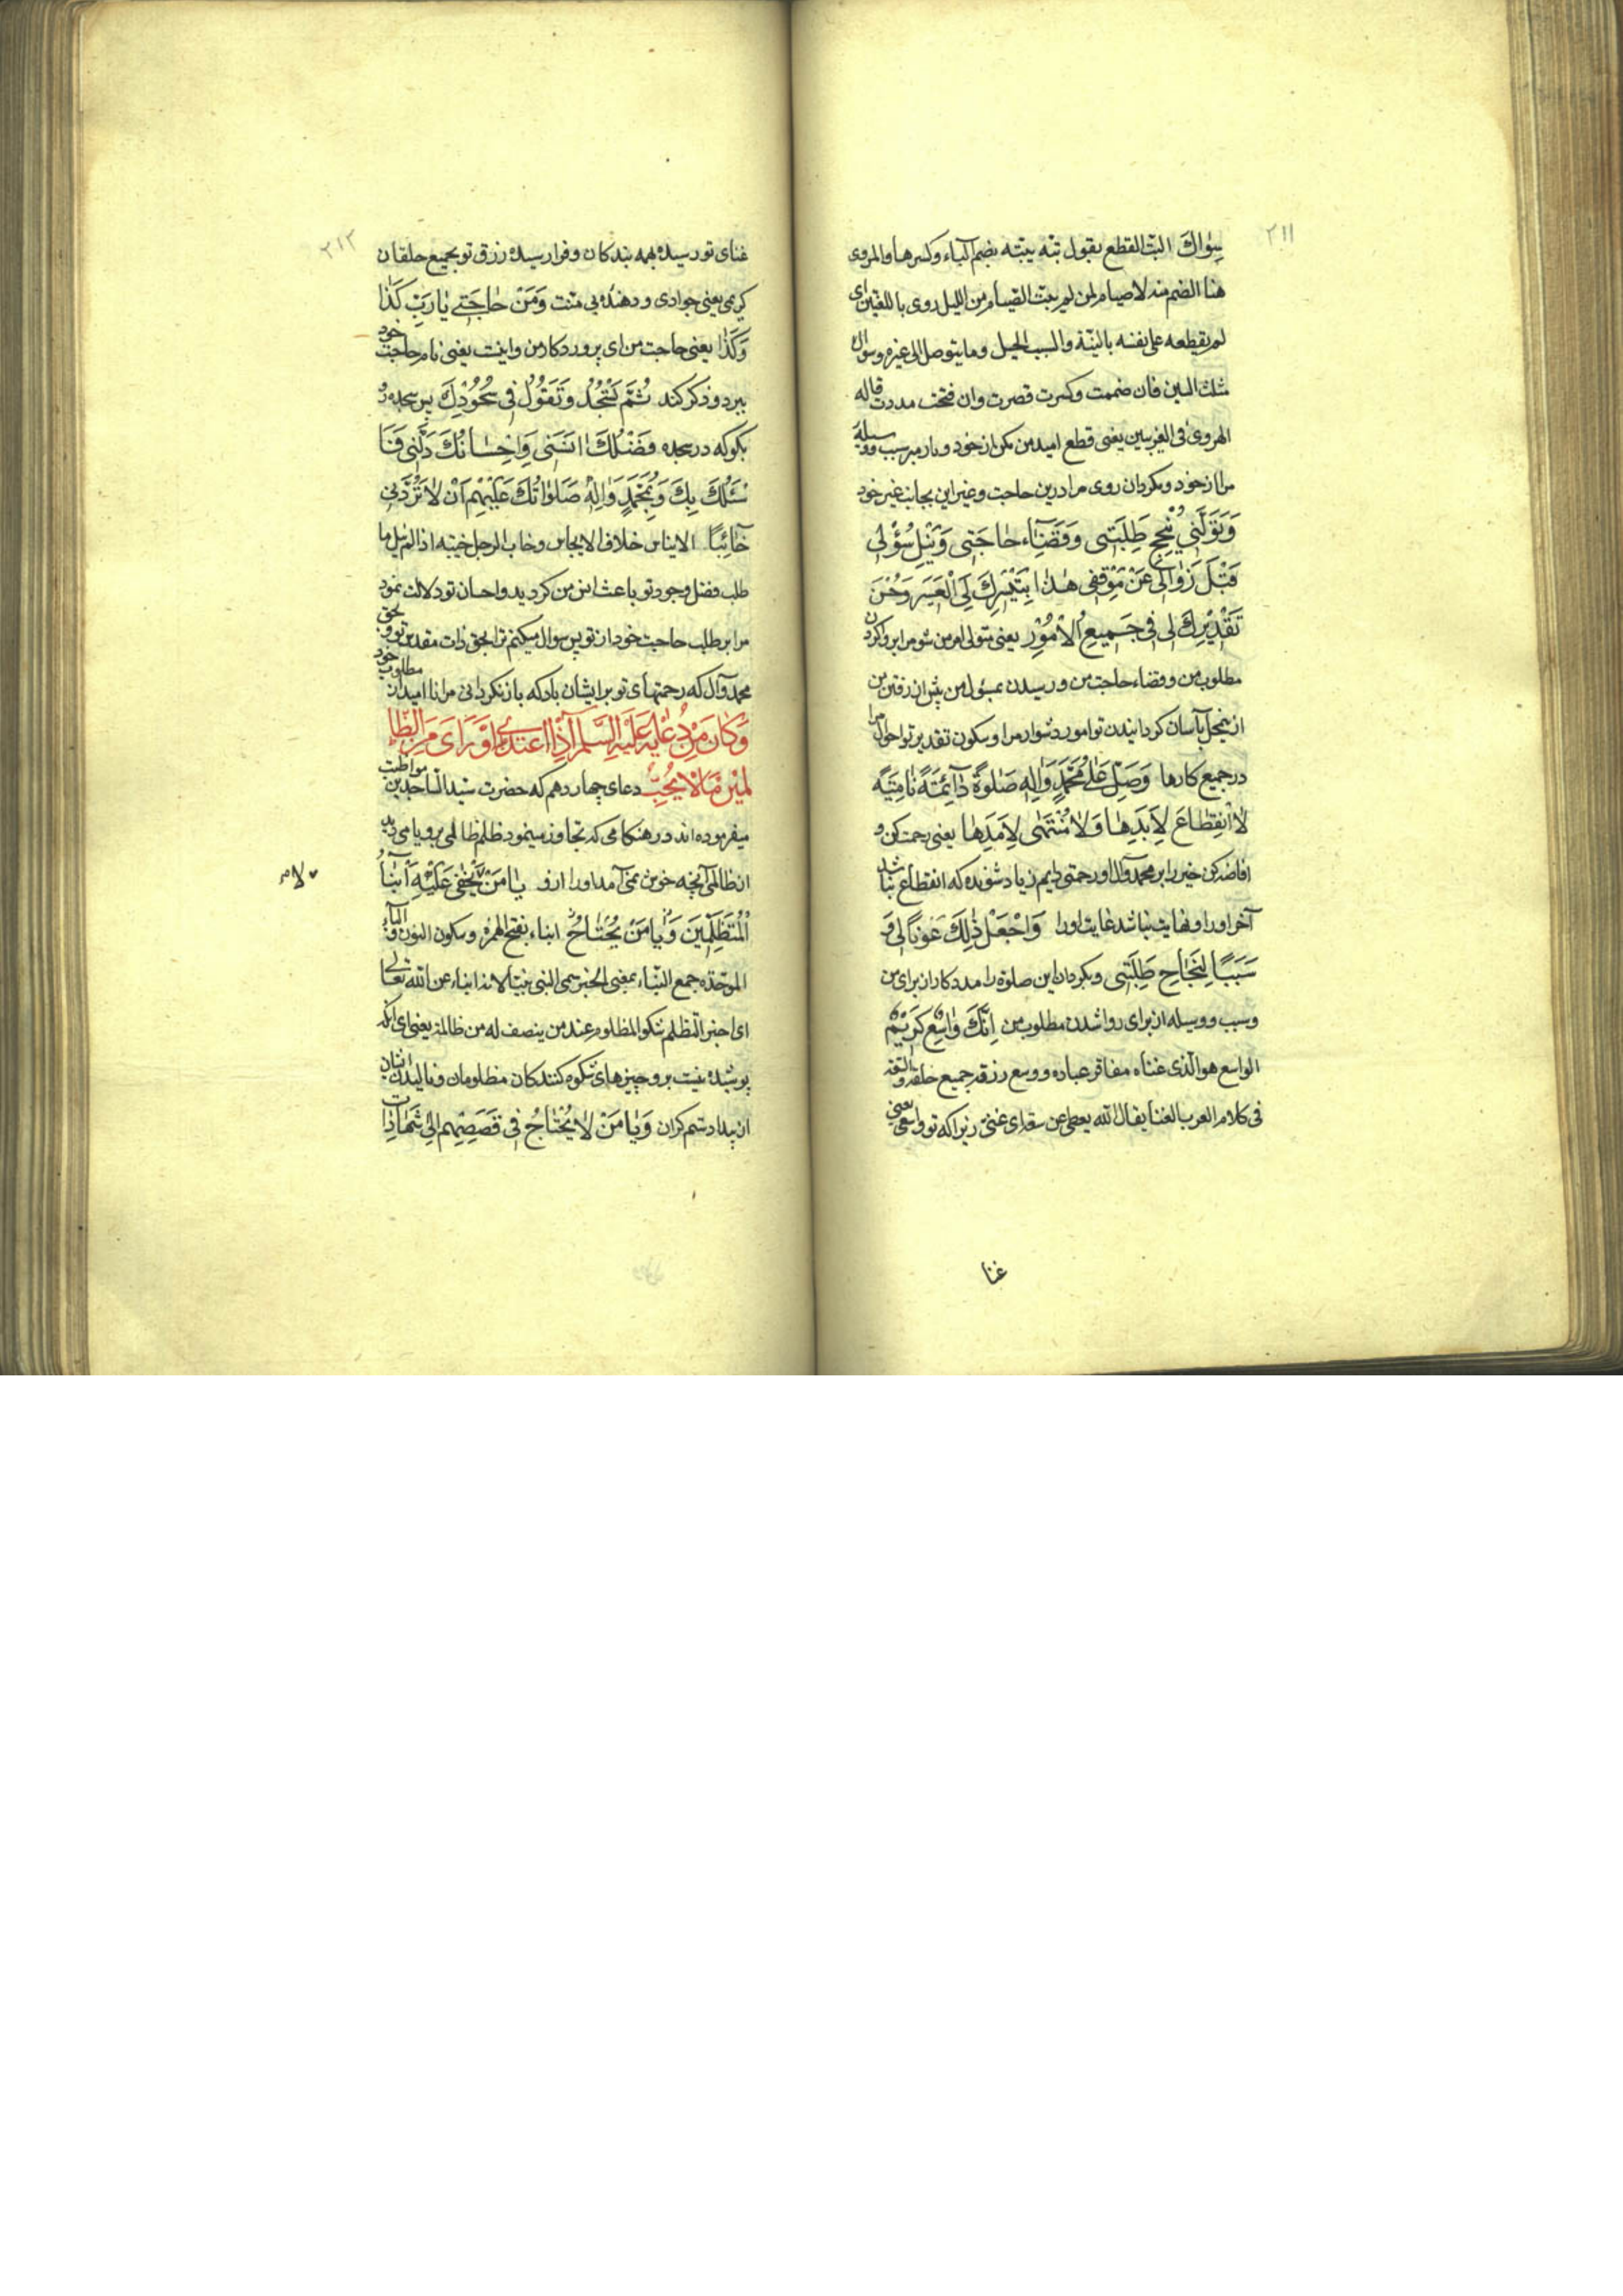 ٢١١
سِوٰاكَ البتّ القطع یقول بتّه یبتّه بضم الباء وکسرها والمروی
هنا الضم منه لاصیام لمن لم یبت الصیام من اللیل روی باللغتین ای
لم یقطعه علی نفسه بالنیّة والسبب الحبل وما یتوصل الی غیره وسواك
مثلث السین فان ضممت وکسرت قصرت وان فتحت مددت قاله
الهروی فی الغریبین یعنی قطع امید من مکن از خود و باز مبر سبب و وسیله
مرا از خود و مکردان روی مرا درین حاجت و غیر این بجانب غیر خود
وَتَوَلَّنی بِنُجْحِ طَلِبَتی وَقَضٰاءِ حٰاجَتی وَنَیْلِ سُؤْلی
قَبْلَ زَوٰالی عَنْ مَوْقِفی هٰذٰا بِتَیْسِیرِكَ لِیَ الْعَسِیرَ وَحُسْنِ
تَقْدِیْرِكَ لی فی جَمِیعِ الْاُمُوْرِ یعنی متولی امر من شو مرا بروا کردن
مطلوب من و قضاء حاجت من و رسیدن بمسئول من پیش از رفتن من
از ینمحل بآسان کردانیدن تو امور دشوار مرا و سکون تقدیر تو احوال مرا
در جمیع کارها وَصَلِّ عَلٰی مُحَمَّدٍ وَاٰلِهِ صَلٰوةً دٰآئِمَةً نٰامِیَةً
لَا انْقِطٰاعَ لِاَبَدِهٰا وَلٰا مُنْتَهٰی لِاَمَدِهٰا یعنی رحمت کن و
افاضه کن خیر را بر محمد وآل او رحمتی دایم زیاد شونده که انقطاع نباشد
آخر اورا و نهایت نباشد غایت اورا وَاجْعَلْ ذٰلِكَ عَوْنًا لی وَ
سَبَبًا لِنَجٰاحِ طَلِبَتی و بکردان این صلوة را مددکار از برای من
و سبب و وسیله از برای روا شدن مطلوب من اِنَّكَ وٰاسِعٌ كَرِیْمٌ
الواسع هوالّذی غناه مفاقر عباده ووسع رزقه جمیع خلقه والسعة
فی کلام العرب الغنا یقال الله یعطی عن سعة ای غنی زیرا که تو واسعی یعنی
غنا
٢١٢
غنای تو رسیده بهمه بندکان و فرا رسیده رزق تو بجمیع خلقان
کریمی یعنی جوادی و دهندهٔ بی منت وَمِنْ حٰاجَتی یٰا رَبِّ كَذٰا
وَكَذٰا یعنی حاجت من ای پروردکار من واینست یعنی نام حاجت خود
ببرد و ذکر کند ثُمَّ تَسْجُدُ وَتَقُوْلُ فی سُجُوْدِكَ پس سجده و
بکو که در سجده فَضْلُكَ اٰنَسَنی وَاِحْسٰانُكَ دَلَّنی فَاَ
سْئَلُكَ بِكَ وَبِمُحَمَّدٍ وَاٰلِهِ صَلَوٰاتُكَ عَلَیْهِمْ اَنْ لٰا تَرُدَّنی
خٰآئِبًا الایناس خلاف الایحاش وخاب الرجل خیبه اذا لم ینل ما
طلب فضل وجود تو باعث انس من کردید و احسان تو دلالت نمود
مرا بر طلب حاجت خود از تو پس سوال میکنم ترا بحق ذات مقدس تو و بحق
محمد وآل که رحمتهای تو بر ایشان باد که باز نکردانی مرا ناامید از مطلوب خود
وَكٰانَ مِنْ دُعٰائِهِ عَلَیْهِ السَّلٰم اِذَا اعْتُدِیَ عَلَیْهِ اَوْ رَاٰی مِنَ الظّٰا
لِمیْنَ مٰا لٰا یُحِبُّ دعای چهاردهم که حضرت سید الساجدین مواظبت
میفرموده اند در هنکامی که تجاوز مینمود ظلم ظالمی برو یا می دید
از ظالمی آنچه خوش نمی آمد اورا ازو یٰا مَنْ لٰا یَخْفیٰ عَلَیْهِ اَنْبٰآءُ
الْمُتَظَلِّمِینَ وَیٰا مَنْ لٰا یُحْتٰاجُ انباء بفتح الهمزه وسکون النون والباء
الموحّده جمع النبّاء بمعنی الخبر سمی النبی نبیّا لانه انباء عن الله تعالی
ای اخبر التظلم شکو المظلوم عند من ینصف له من ظالمه یعنی ای آنکه
پوشیده نیست برو چیزهای شکوه کنندکان مظلومان و نالیدن ایشان
از بیداد ستم کران وَیٰا مَنْ لٰا یُحْتٰاجُ فی قَصَصِهِمْ اِلیٰ شَهٰادٰاتِ